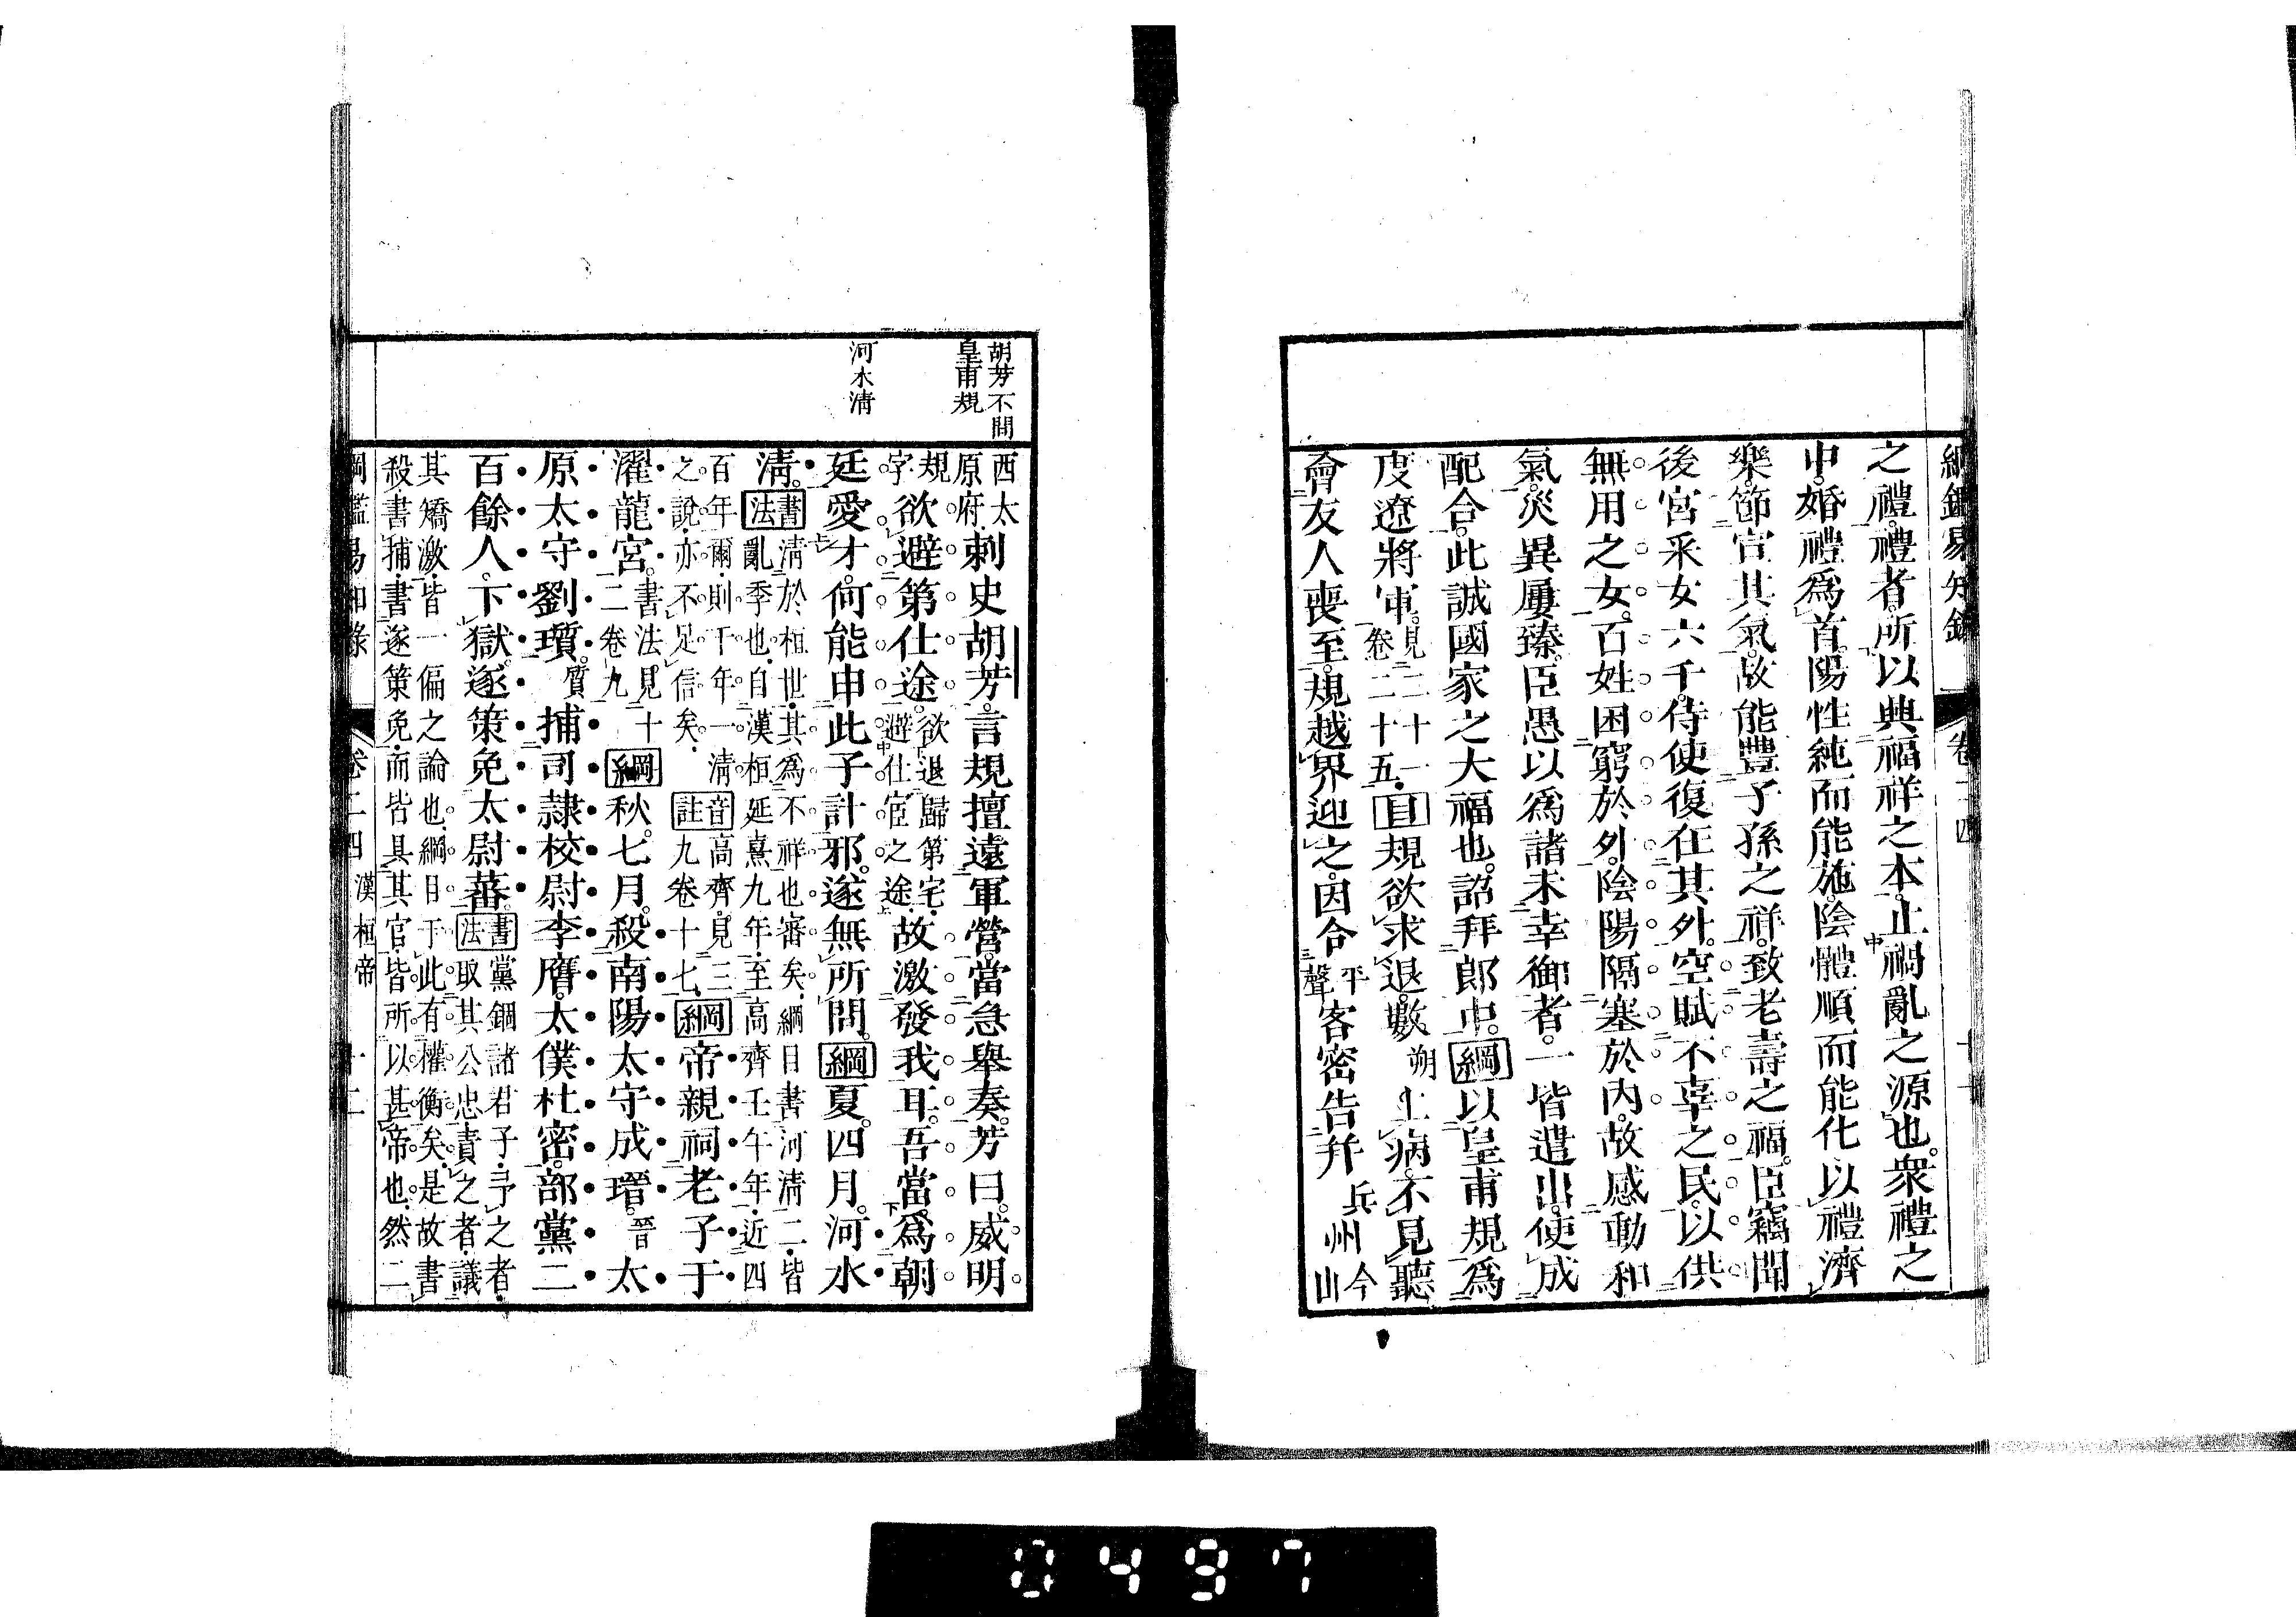 綱鑑易知錄 卷二四 十一
之禮。禮者。所以興福祥之本。止禍亂之源也。衆禮之
中。婚禮爲首。陽性純而能施。陰體順而能化。以禮濟
樂。節宣其氣。故能豐子孫之祥。致老壽之福。臣竊聞
後宮采女六千。侍使復在其外。空賦不辜之民。以供
無用之女。百姓困窮於外。陰陽隔塞於內。故感動和
氣。災異屢臻。臣愚以爲諸未幸御者。一皆遣出。使成
配合。此誠國家之大福也。詔拜郎中。綱以皇甫規爲
度遼將軍。見二十一卷二十五。目規欲求退。數朔上病。不見聽
會友人喪至。規越界迎之。因合平聲客密告幷兵州今山
胡芳不問
皇甫規
河水清
西太原府。刺史胡芳。言規擅遠軍營。當急舉奏。芳曰。威明
規字欲避第仕途。欲退歸第宅。避仕宦之途。故激發我耳。吾當爲朝
廷愛才。何能申此子計邪。遂無所問。綱夏。四月。河水
清。書法清於桓世。其爲不祥也審矣。綱目書河清二。皆
亂季也。自漢桓延熹九年。至高齊壬午年。近四
百年爾。則千年一清
之說。亦不足信矣。音註高齊。見三九卷十七。綱帝親祠老子于
濯龍宮。書法見十二卷九。綱秋。七月。殺南陽太守成瑨。晉太
原太守劉瓆。質捕司隷校尉李膺。太僕杜密。部黨二
百餘人。下獄。遂策免太尉蕃。書法黨錮諸君子。予之者。
取其公忠。責之者。議
其矯激。皆一偏之論也。綱目于此有權衡矣。是故書
殺書捕。書遂策免。而皆具其官。皆所以甚帝也。然二
綱鑑易知錄 卷二四 漢桓帝 十二
0497